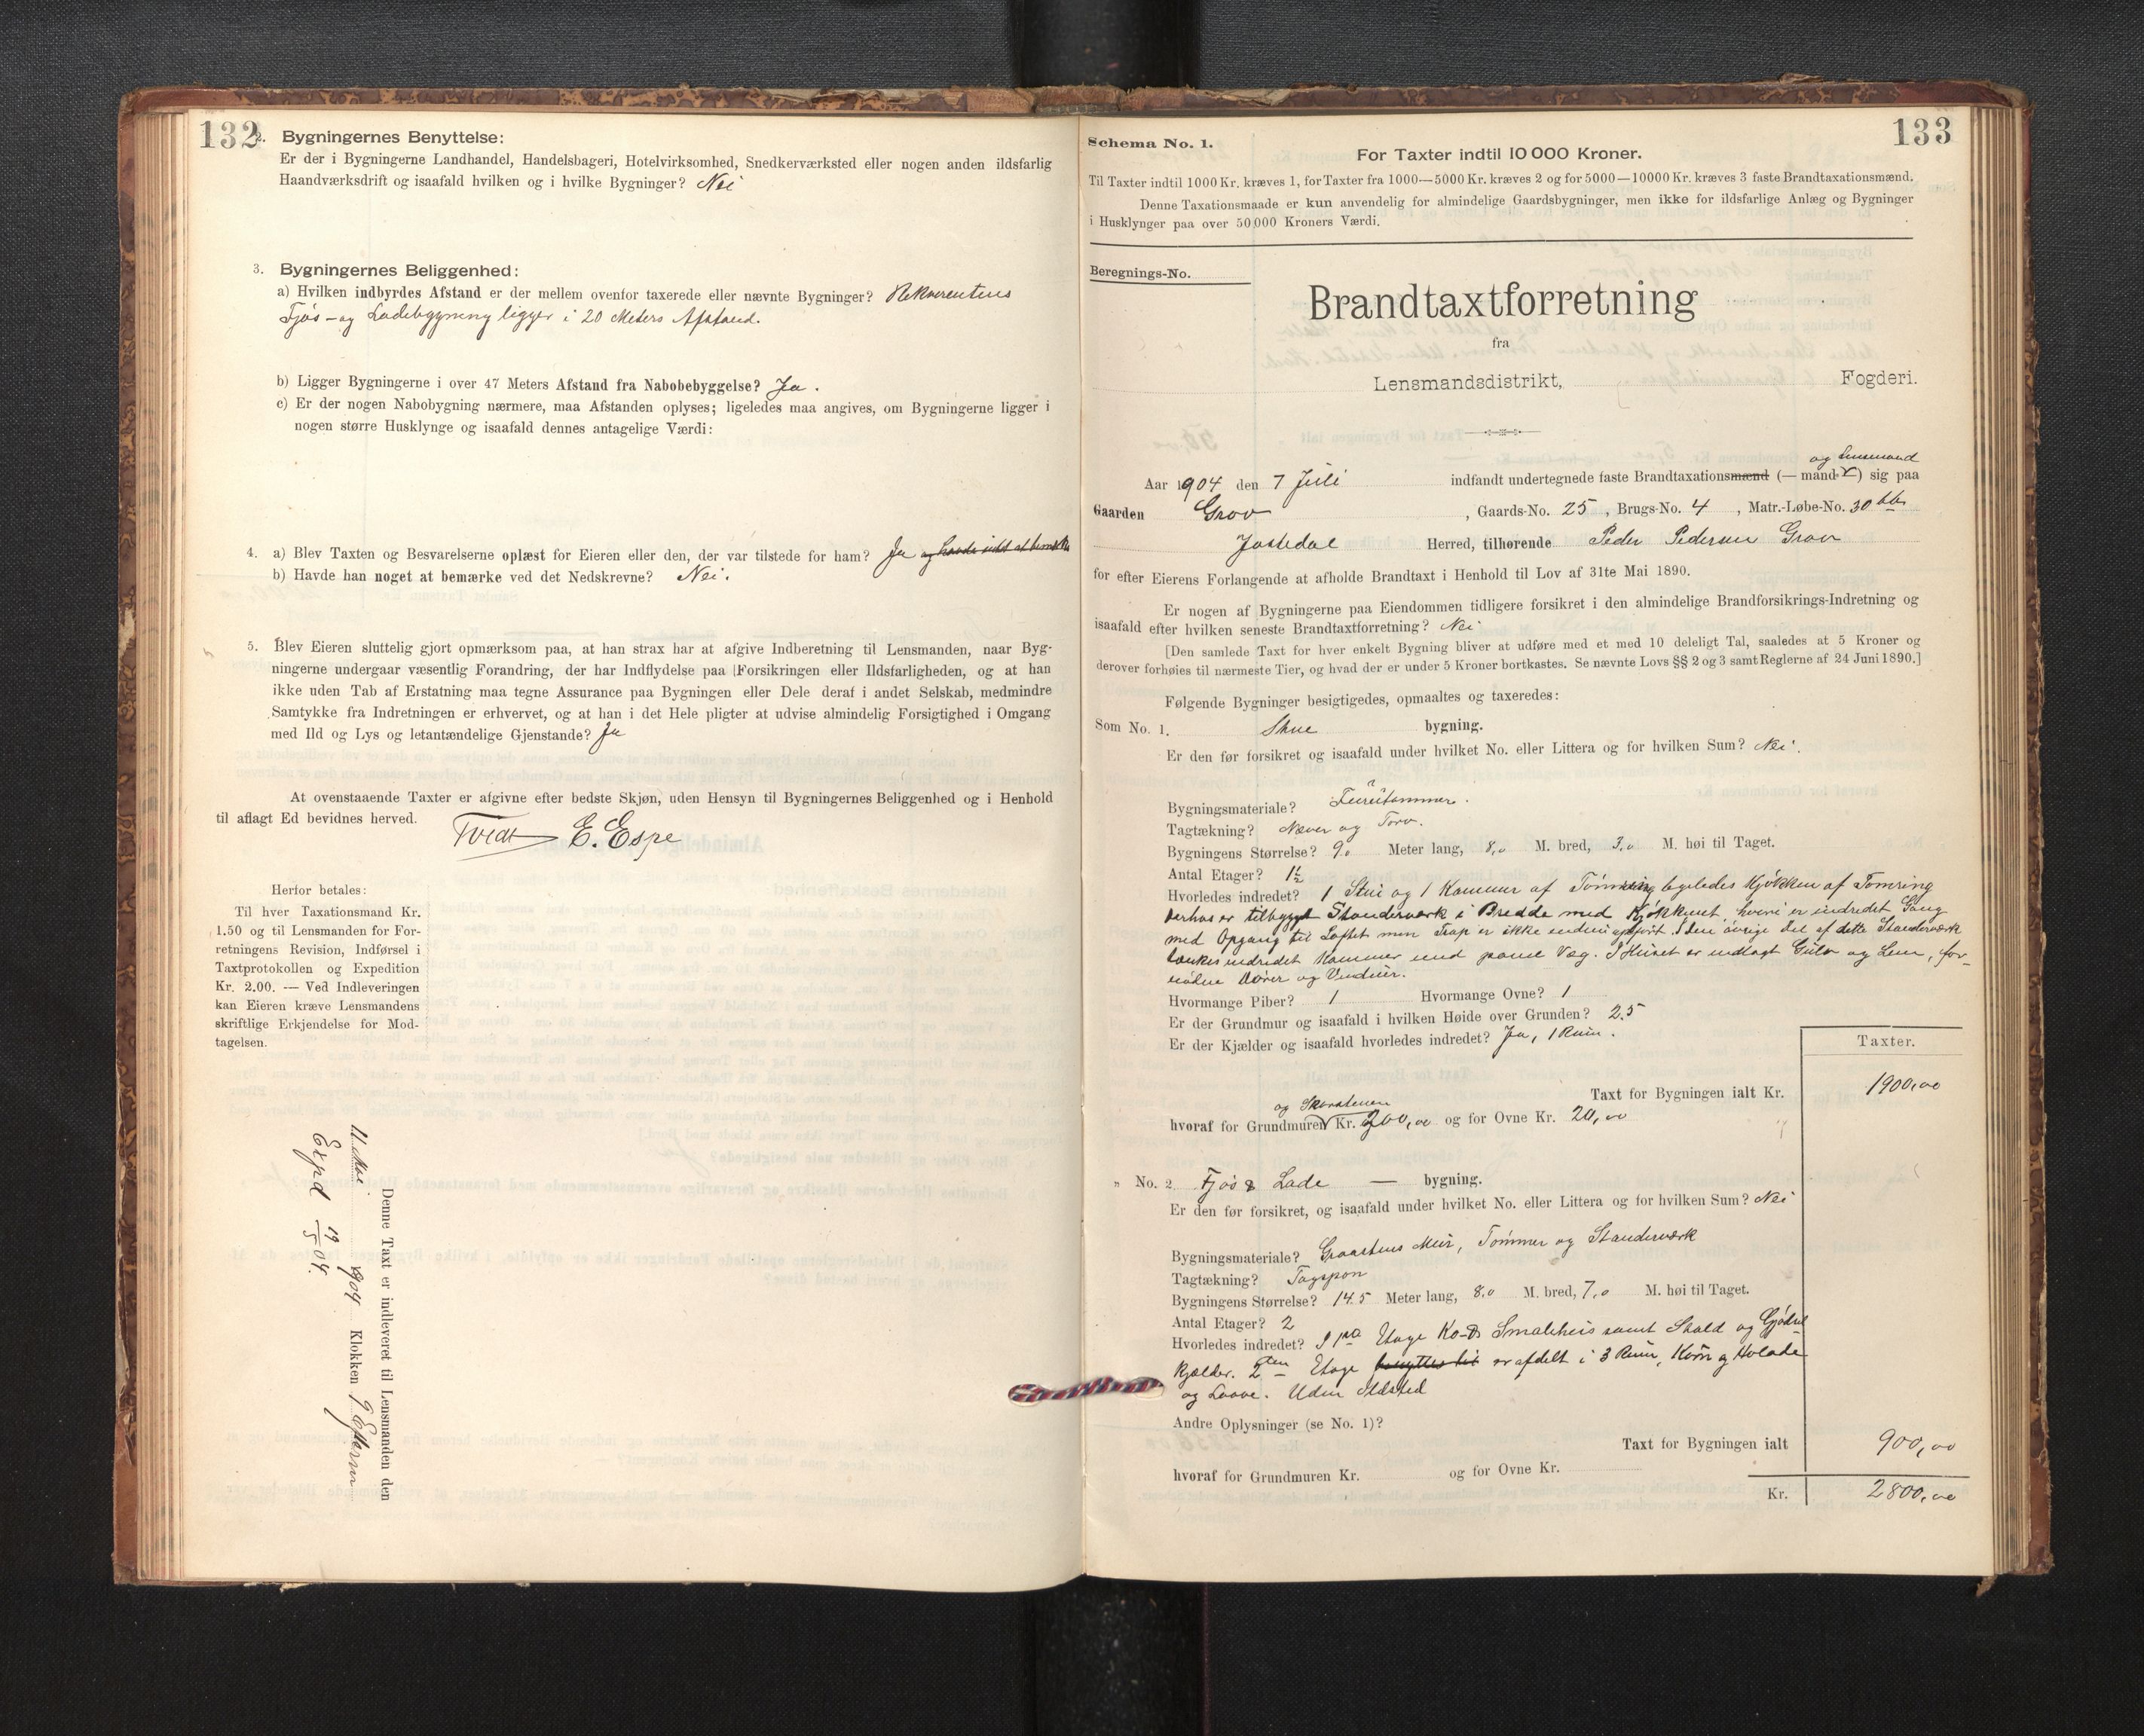 132
2. Bygningernes Benyttelse:
Er der i Bygningerne Landhandel, Handelsbageri, Hotelvirksomhed, Snedkerværksted eller nogen anden ildsfarlig
Haandværksdrift og isaafald hvilken og i hvilke Bygninger? Nei
3. Bygningernes Beliggenhed:
a) Hvilken indbyrdes Afstand er der mellem ovenfor taxerede eller nævnte Bygninger? Rekvirentens
Fjös- og Ladebygning ligger i 20 Meters Afstand.
b) Ligger Bygningerne i over 47 Meters Afstand fra Nabobebyggelse? Ja.
c) Er der nogen Nabobygning nærmere, maa Afstanden oplyses; ligeledes maa angives, om Bygningerne ligger i
nogen større Husklynge og isaafald dennes antagelige Værdi:
4. a) Blev Taxten og Besvarelserne oplæst for Eieren eller den, der var tilstede for ham? Ja og havde intet at bemærke
b) Havde han noget at bemærke ved det Nedskrevne? Nei.
5. Blev Eieren sluttelig gjort opmærksom paa, at han strax har at afgive Indberetning til Lensmanden, naar Byg-
ningerne undergaar væsentlig Forandring, der har Indflydelse paa Forsikringen eller Ildsfarligheden, og at han
ikke uden Tab af Erstatning maa tegne Assurance paa Bygningen eller Dele deraf i andet Selskab, medmindre
Samtykke fra Indretningen er erhvervet, og at han i det Hele pligter at udvise almindelig Forsigtighed i Omgang
med Ild og Lys og letantændelige Gjenstande? Ja
At ovenstaaende Taxter er afgivne efter bedste Skjøn, uden Hensyn til Bygningernes Beliggenhed og i Henhold
til aflagt Ed bevidnes herved.
E. Espe
Herfor betales:
Til hver Taxationsmand Kr.
1.50 og til Lensmanden for For-
retningens Revision, Indførsel i
Taxtprotokollen og Expedition
Kr. 2.00. — Ved Indleveringen
kan Eieren kræve Lensmandens
skriftlige Erkjendelse for Mod-
tagelsen.
Denne Taxt er indleveret til Lensmanden den
1904 Klokken 9 Efterm
Expd 19/5 04.
133
Schema No. 1.
For Taxter indtil 10 000 Kroner.
Til Taxter indtil 1000 Kr. kræves 1, for Taxter fra 1000—5000 Kr. kræves 2 og for 5000—10000 Kr. kræves 3 faste Brandtaxationsmænd.
Denne Taxationsmaade er kun anvendelig for almindelige Gaardsbygninger, men ikke for ildsfarlige Anlæg og Bygninger
i Husklynger paa over 50,000 Kroners Værdi.
Beregnings-No.
Brandtaxtforretning
fra
Lensmandsdistrikt, Fogderi.
og Lensmand
Aar 1904 den 7 Juli indfandt undertegnede faste Brandtaxationsmænd (— mand) sig paa
Gaarden Grov, Gaards-No. 25, Brugs-No. 4, Matr.-Løbe-No. 30
Jostedal Herred, tilhørende Peder Pedersen Grov
for efter Eierens Forlangende at afholde Brandtaxt i Henhold til Lov af 31te Mai 1890.
Er nogen af Bygningerne paa Eiendommen tidligere forsikret i den almindelige Brandforsikrings-Indretning og
isaafald efter hvilken seneste Brandtaxtforretning? Nei
[Den samlede Taxt for hver enkelt Bygning bliver at udføre med et med 10 deleligt Tal, saaledes at 5 Kroner og
derover forhøies til nærmeste Tier, og hvad der er under 5 Kroner bortkastes. Se nævnte Lovs §§ 2 og 3 samt Reglerne af 24 Juni 1890.]
Følgende Bygninger besigtigedes, opmaaltes og taxeredes:
Som No. 1. Stue bygning.
Er den før forsikret og isaafald under hvilket No. eller Littera og for hvilken Sum? Nei.
Bygningsmateriale? Furutømmer.
Tagtækning? Næver og Torv.
Bygningens Størrelse? 9.0 Meter lang, 8,0 M. bred, 3,0 M. høi til Taget.
Antal Etager? 1½
Hvorledes indredet? 1 Stue og 1 Kammer af Tömring ligeledes Kjökken af Tömring
Derhos er tilbygget Standerværk i Bredde med Kjökkenet hvori er indredet Gang
med Opgang til Loftet men Trap er ikke endnu opfört. I den övrige Del af dette Standerværk
tænkes indredet Kammer med panel Væg. I Huset er indlagt Gulv og Lem, for-
nödne Dörer og Vinduer.
Hvormange Piber? 1 Hvormange Ovne? 1
Er der Grundmur og isaafald i hvilken Høide over Grunden? 2.5
Er der Kjælder og isaafald hvorledes indredet? Ja, 1 Rum.
Taxter.
Taxt for Bygningen ialt Kr. 1900,00
og Skorstenen
hvoraf for Grundmuren Kr. 200,00 og for Ovne Kr. 20,00
" No. 2 Fjös & Lade — bygning.
Er den før forsikret, og isaafald under hvilket No. eller Littera og for hvilken Sum? Nei
Bygningsmateriale? Graastens Mur, Tömmer og Standerværk
Tagtækning? Tagspon
Bygningens Størrelse? 14.5 Meter lang, 8,0 M. bred, 7,0 M. høi til Taget.
Antal Etager? 2
Hvorledes indredet? I Etage Ko- & Smalehus samt Stald og Gjödsel
kjælder. 2den Etage benyttes til er afdelt i 3 Rum, Korn og Hölade
og Laave. Uden Ildsted
Andre Oplysninger (se No. 1)?
Taxt for Bygningen ialt 900,00
hvoraf for Grundmuren Kr. og for Ovne Kr.
Kr. 2800,00